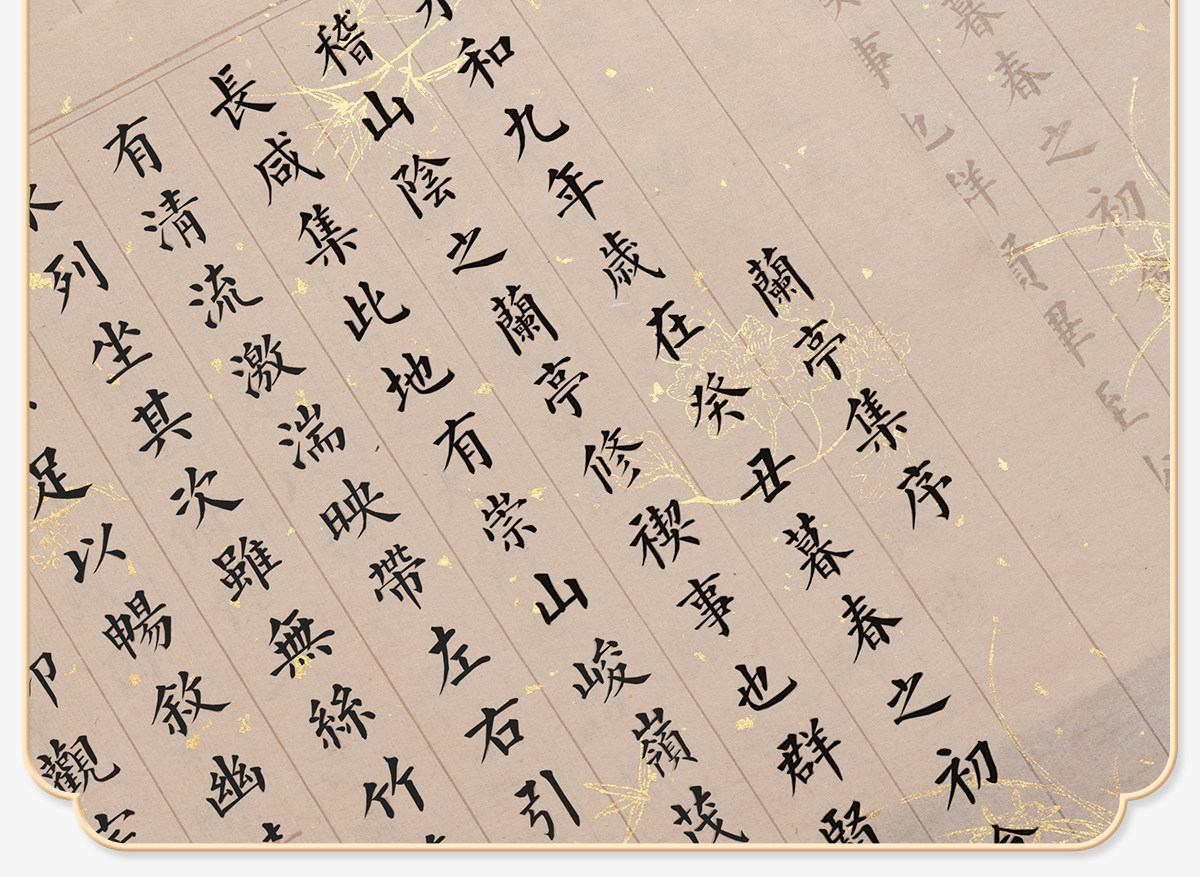 暮春之初
事也群賢畢至
蘭亭集序
和九年歲在癸丑暮春之初
稽山陰之蘭亭修禊事也群賢
長咸集此地有崇山峻嶺茂
有清流激湍映帶左右引
列坐其次雖無絲竹
足以暢敘幽
觀